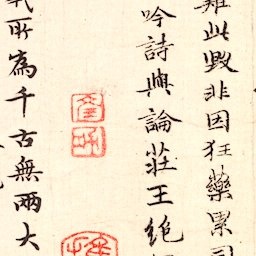 難此毀非因狂藥累
吟詩與論莊王絶
所為千古無兩大